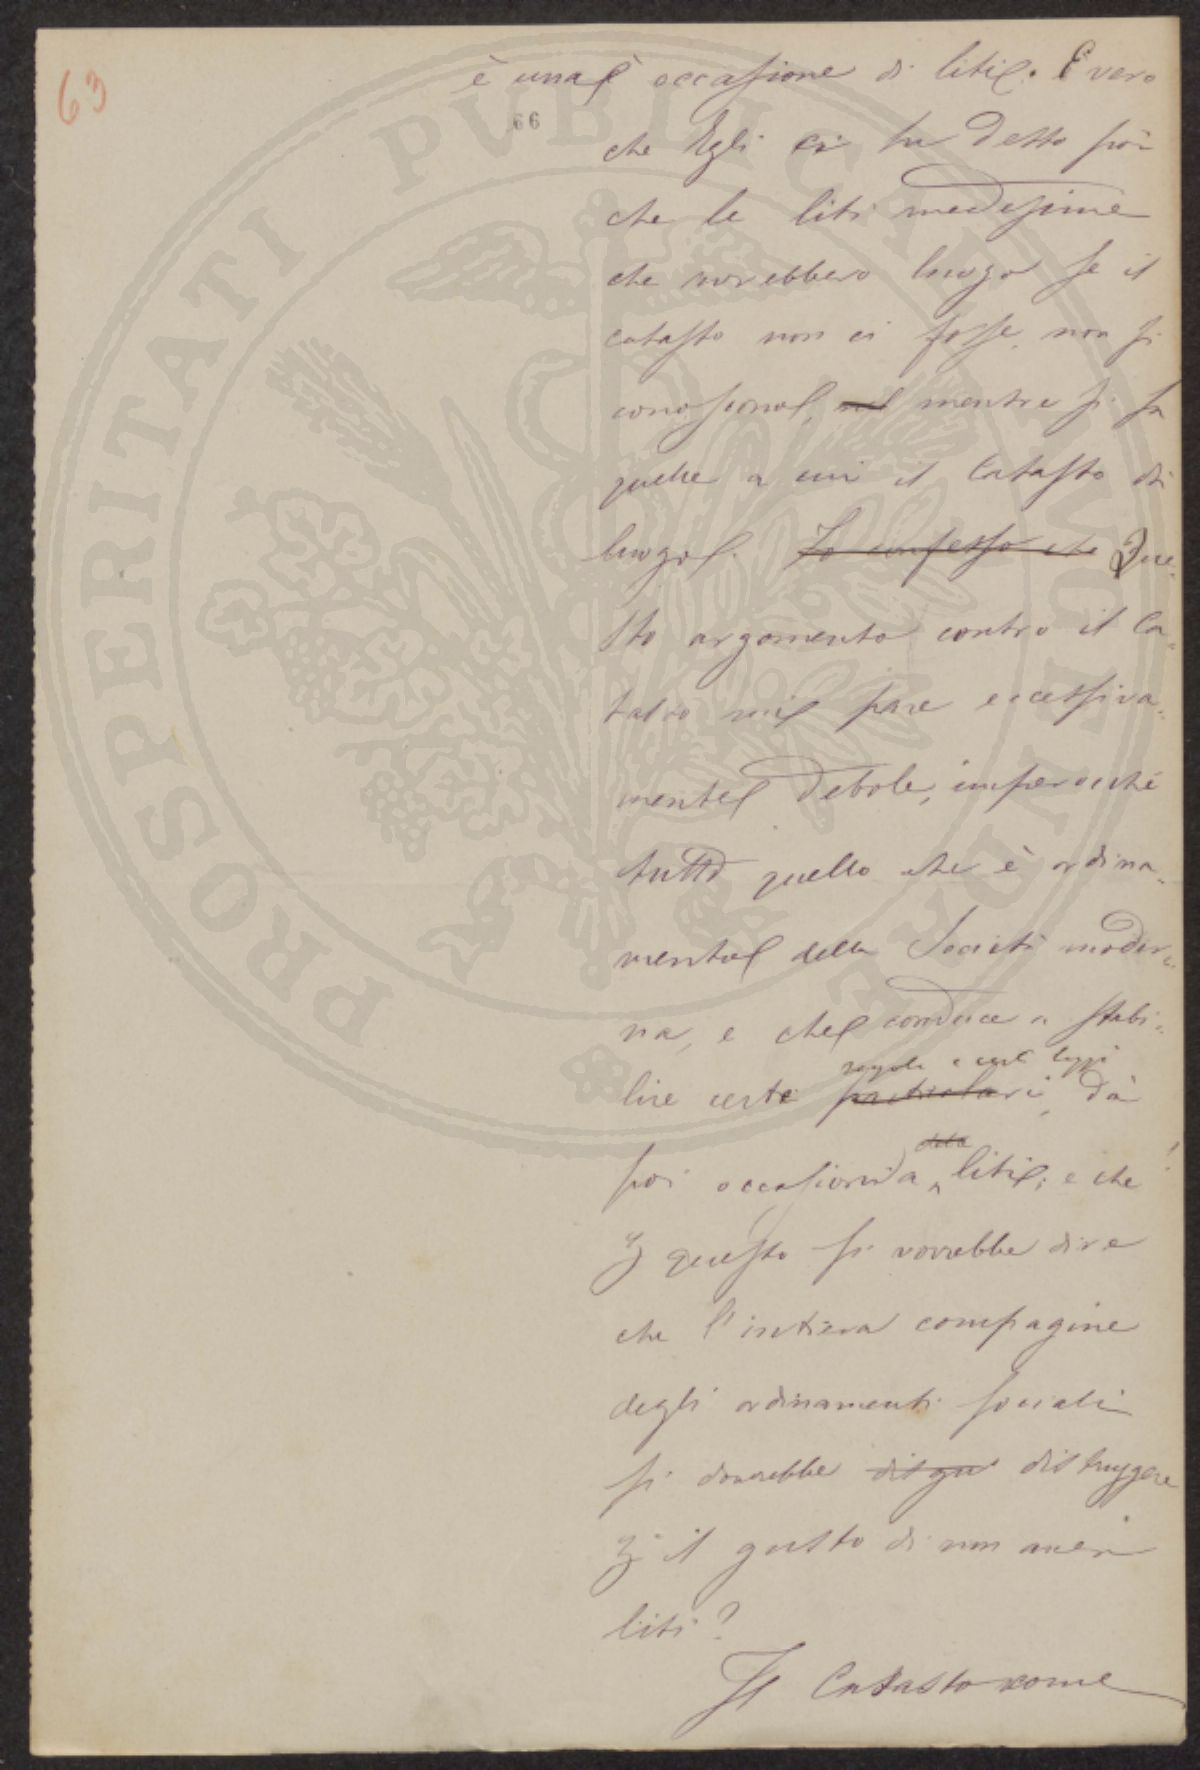 63
66
è una occasione di liti. È vero
che Egli ci ha detto poi
che le liti medesime
che avrebbero luogo se il
catasto non ci fosse, non si
conoscono, mentre si sa
quelle a cui il Catasto dà
luogo. Io confesso che Que-
sto argomento contro il Ca-
tasto mi pare eccessiva-
mente debole, imperocché
tutto quello che è ordina-
mento della Società moder-
na, e che conduce a stabi-
regole e certe leggi
lire certe particolari, dà
poi occasioni a liti; e che
questo si vorrebbe dire
che l'intiera compagine
degli ordinamenti sociali
si dovrebbe distruggere
il gusto di non aver
liti?
Il Catasto come
PROSPERITATI PVBLICAE AVGENDAE